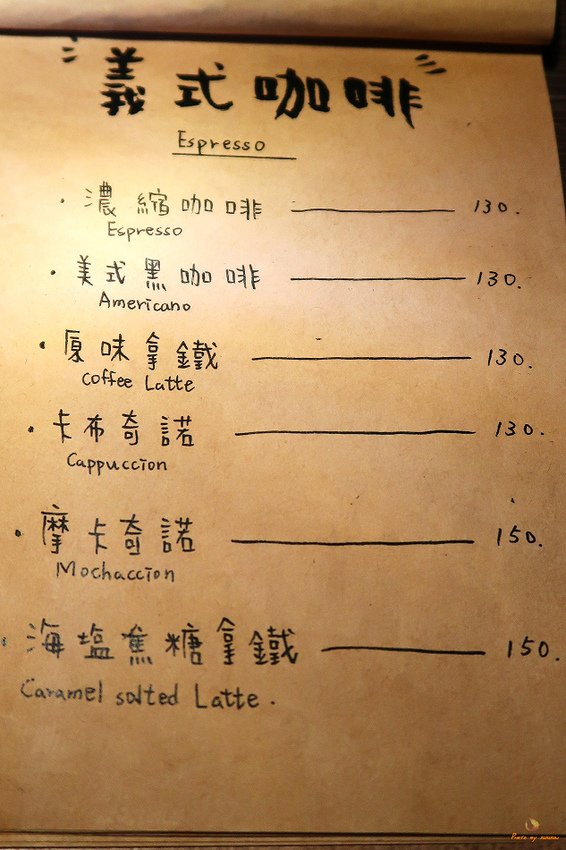 義式咖啡
Espresso
· 濃縮咖啡 130.
Espresso
· 美式黑咖啡 130.
Americano
· 原味拿鐵 130.
Coffee Latte
· 卡布奇諾 130.
Cappuccion
· 摩卡奇諾 150.
Mochaccion
· 海塩焦糖拿鐵 150.
Caramel salted Latte.